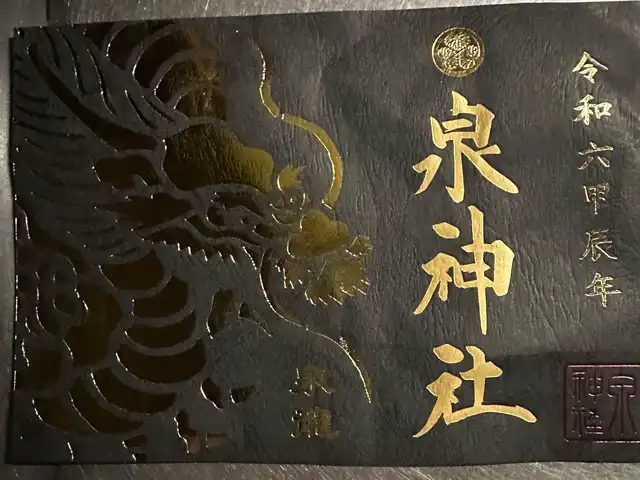 令和六甲辰年
泉神社
泉神社